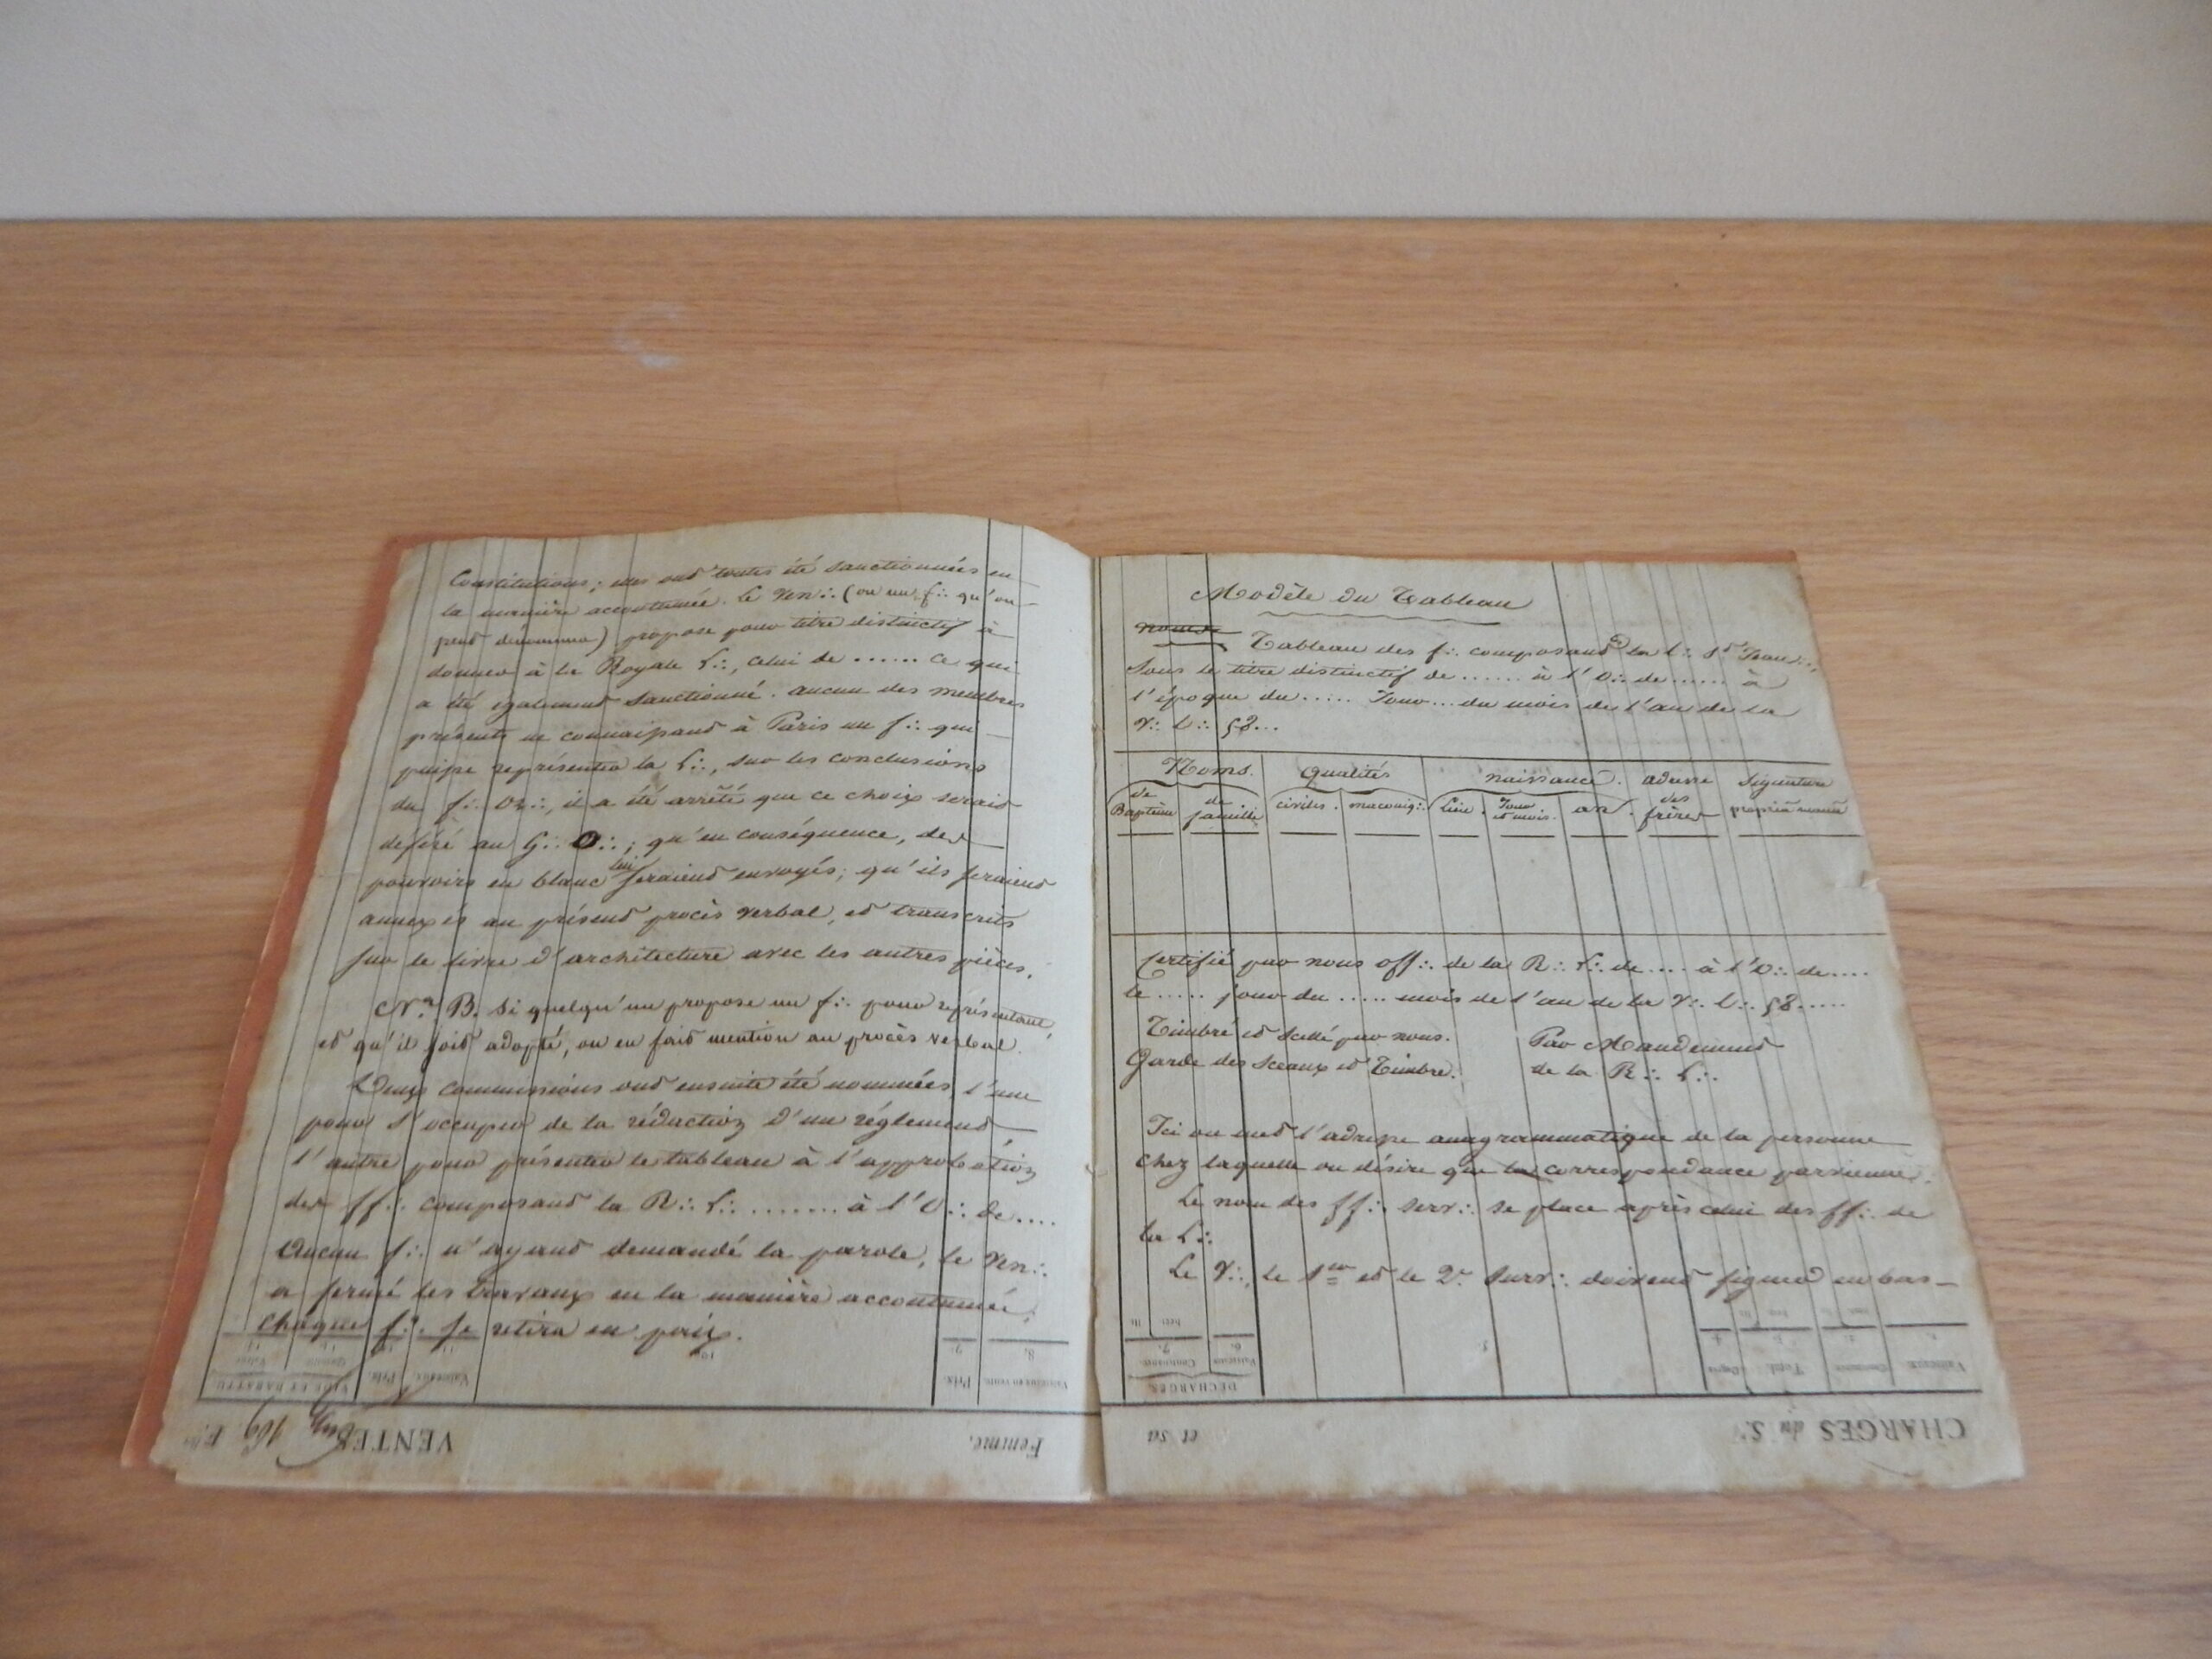 Constitutions; elles ont toutes été sanctionnées en
la manière accoutumée. Le Ven∴ (ou un f∴ qu'on
peut dénommer) propose pour titre distinctif à
donner à la Royale L∴, celui de ...... ce qui
a été également sanctionné. aucun des membres
présents ne connaissant à Paris un f∴ qui
puisse représenter la L∴, sur les conclusions
du f∴ Or∴, il a été arrêté que ce choix serait
déféré au G∴ O∴; qu'en conséquence, des
pouvoirs en blanc lui seraient envoyés; qu'ils seraient
annexés au présent procès verbal, et transcrits
sur le livre d'architecture avec les autres pièces.
N.a B. Si quelqu'un propose un f∴ pour représentant,
et qu'il soit adopté, on en fait mention au procès verbal.
Deux commissions ont ensuite été nommées, l'une
pour s'occuper de la rédaction d'un réglement
l'autre pour présenter le tableau à l'approbation
des ff∴ composant la R∴ L∴ ....... à l'O∴ de....
Aucun f∴ n'ayant demandé la parole, le Ven∴
a fermé les travaux en la manière accoutumée,
chaque f∴ se retira en paix.
8. Valeur en vente. 7. Prix.
VENTES
Femme.
Modèle du Tableau
Tableau des f∴ composant la L∴ St Jean∴,
Sous le titre distinctif de ...... à l'O∴ de ...... à
l'époque du ..... Jour ... du mois de l'an de la
V∴ L∴ 58...
Noms. Qualités naissance. adresse Signature
de Baptême de famille civiles. maconiq∴ Lieu. Jour et mois. an. des frères
Certifié par nous off∴ de la R∴ L∴ de .... à l'O∴ de ....
le ..... jour du ..... mois de l'an de la V∴ L∴ 58.....
Timbré et scellé par nous. Par Mandement
Garde des Sceaux et Timbre. de la R∴ L∴
Ici on met l'adresse anagrammatique de la personne
chez laquelle on désire que la correspondance parvienne.
Le nom des ff∴ serv∴ se place après celui des ff∴ de
la L∴
Le V∴, le 1er et le 2e Surv∴ doivent signer en bas
DÉCHARGES.
et sa
CHARGES du S.r